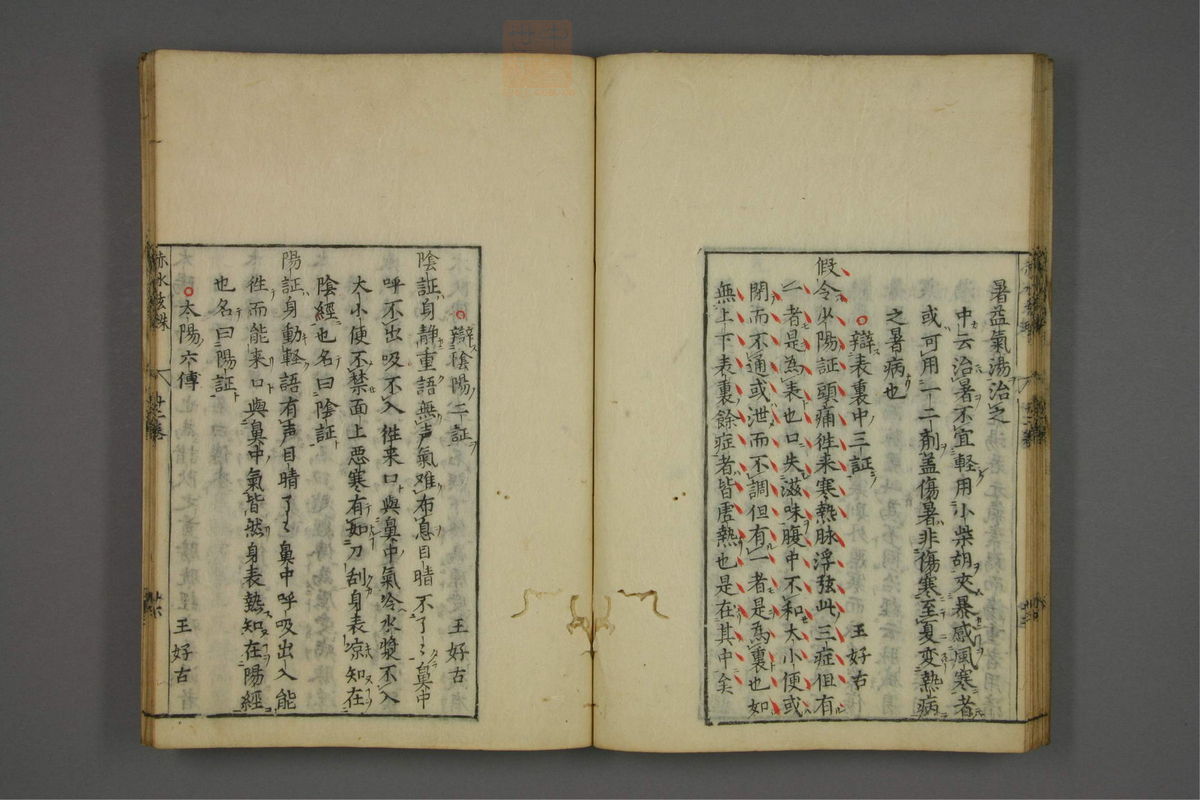 暑益氣湯治之
中云治暑不宜軽用小柴胡夾暴感風寒者
或可用一二剤盖傷暑非傷寒至夏変熱病
之暑病也
辯表裏中三証 王好古
假令少陽証頭痛徃来寒熱脉浮弦此三症但有
一者是為表也口失滋味腹中不和大小便或
閉而不通或泄而不調但有一者是為裏也如
無上下表裏餘症者皆虚熱也是在其中矣
辯陰陽二証 王好古
陰証身静重語無声氣难布息目睛不了〻鼻中
呼不出吸不入徃来口與鼻中氣冷水漿不入
大小便不禁面上恶寒有如刀刮身表凉知在
陰經也名曰陰証
陽証身動軽語有声目睛了〻鼻中呼吸出入能
徃而能来口與鼻中氣皆然身表热知在陽經
也名曰陽証
太陽六傳 王好古
赤水玄珠